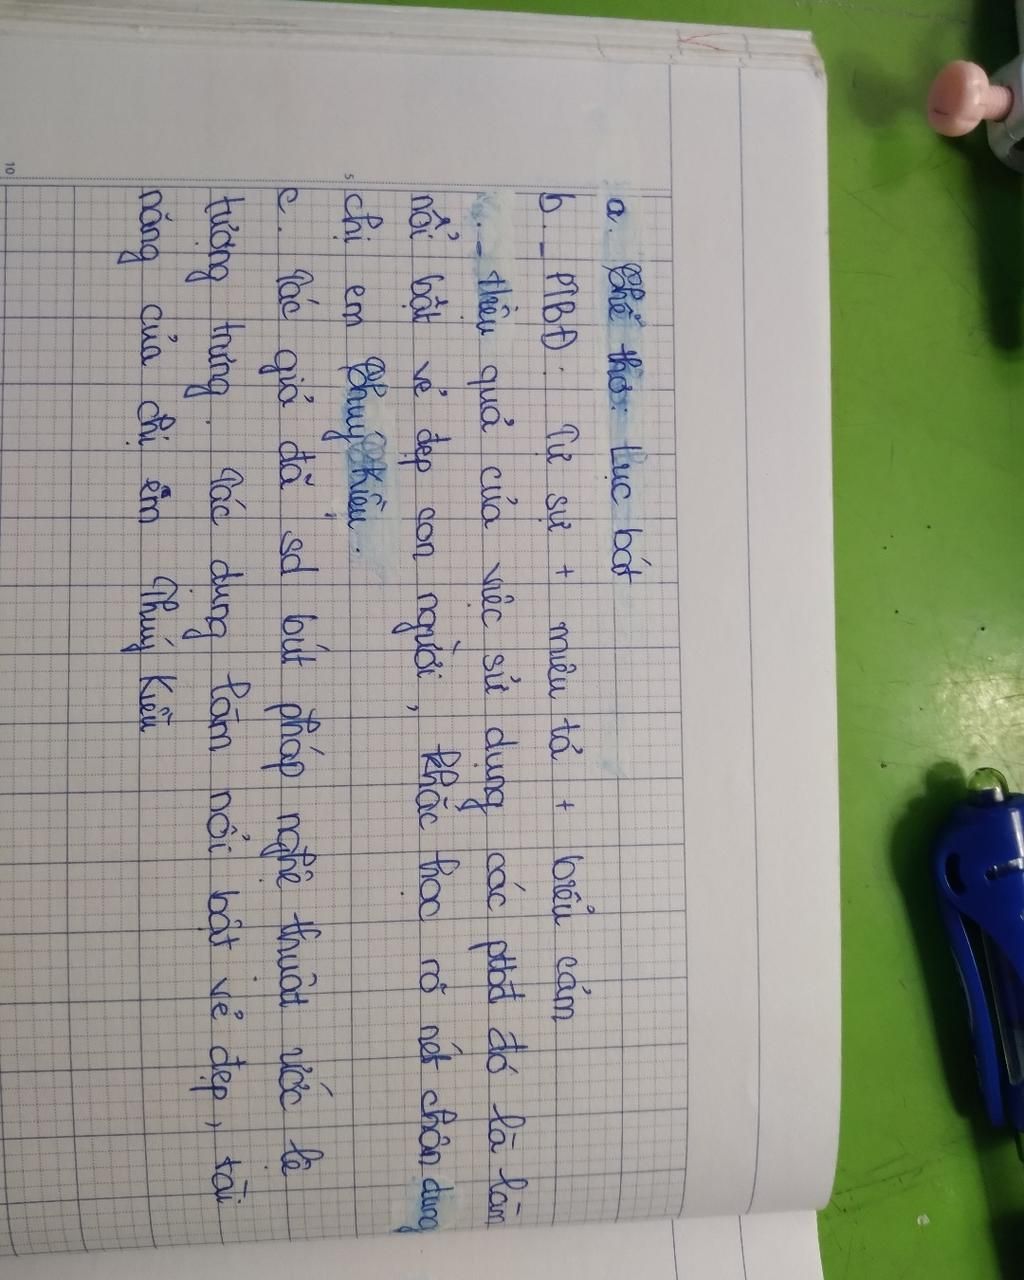 a. Thể thơ: Lục bát
b. _ PTBĐ: Tự sự + miêu tả + biểu cảm
_ Hiệu quả của việc sử dụng các ptbđ đó là làm
nổi bật vẻ đẹp con người, khắc hoạ rõ nét chân dung
chị em Thuý Kiều.
c. Tác giả đã sd bút pháp nghệ thuật ước lệ
tượng trưng. Tác dụng làm nổi bật vẻ đẹp, tài
năng của chị em Thuý Kiều
5
10